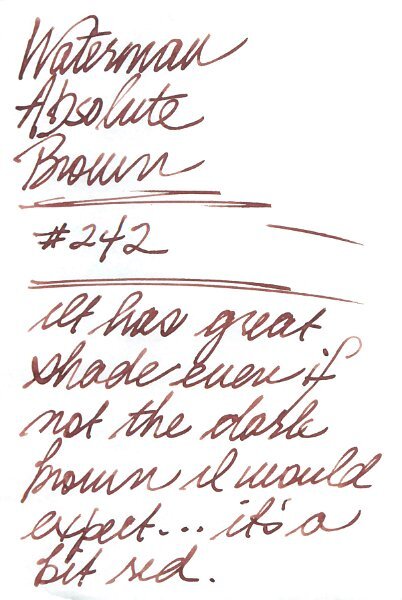 Waterman
Absolute
Brown
#242
It has great
shade even if
not the dark
brown I would
expect... it's a
bit red.